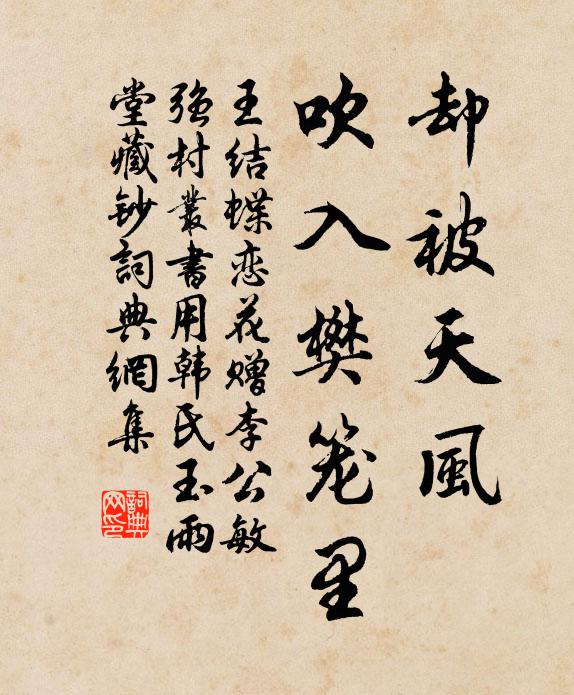 却被天風
吹入樊笼里
王结蝶恋花赠李公敏
强村叢書用韩氏玉雨
堂藏钞詞典網集
詞典
网印